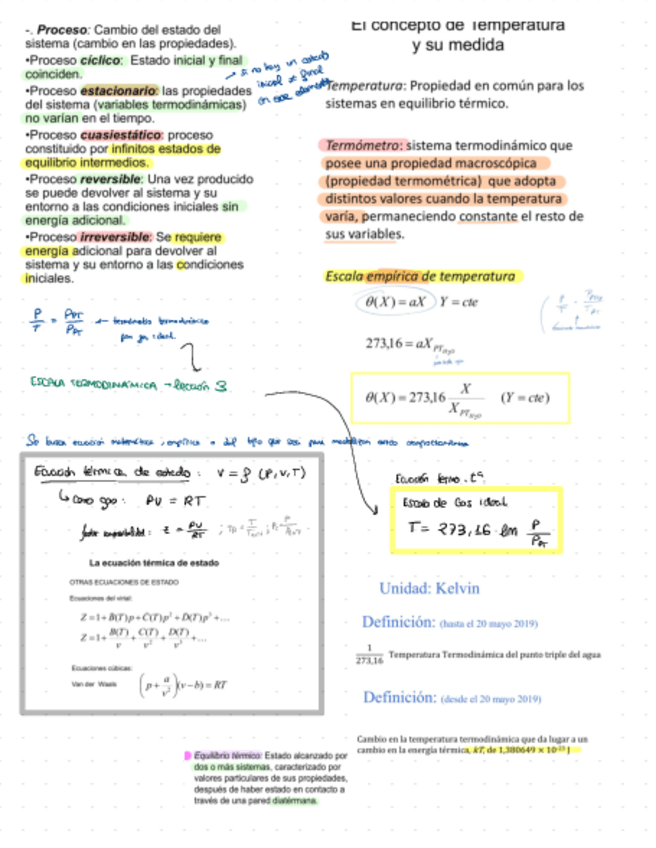 -. Proceso: Cambio del estado del
sistema (cambio en las propiedades).
•Proceso cíclico: Estado inicial y final
coinciden.
•Proceso estacionario: las propiedades
del sistema (variables termodinámicas)
no varían en el tiempo.
•Proceso cuasiestático: proceso
constituido por infinitos estados de
equilibrio intermedios.
•Proceso reversible: Una vez producido
se puede devolver al sistema y su
entorno a las condiciones iniciales sin
energía adicional.
•Proceso irreversible: Se requiere
energía adicional para devolver al
sistema y su entorno a las condiciones
iniciales.
→ si no hay un estado
inicial ≠ final
P/T = P_PT/P_PT ← termómetro termodinámico
por gas ideal
ESCALA TERMODINÁMICA → lección 3
El concepto de Temperatura
y su medida
Temperatura: Propiedad en común para los
sistemas en equilibrio térmico.
Termómetro: sistema termodinámico que
posee una propiedad macroscópica
(propiedad termométrica) que adopta
distintos valores cuando la temperatura
varía, permaneciendo constante el resto de
sus variables.
Escala empírica de temperatura
θ(X) = aX Y = cte
273,16 = aX_PT_H₂O
θ(X) = 273,16 X/X_PT_H₂O (Y = cte)
Se busca ecuación matemática, empírica o del tipo que sea para
Ecuación térmica de estado: V = f (P, V, T)
↳ Caso gas: PV = RT
factor compresibilidad: Z = PV/RT
La ecuación térmica de estado
OTRAS ECUACIONES DE ESTADO
Ecuaciones del virial:
Z = 1 + B(T)p + C(T)p² + D(T)p³ + ...
Z = 1 + B(T)/v + C(T)/v² + D(T)/v³ + ...
Ecuaciones cúbicas:
Van der Waals (p + a/v²)(v − b) = RT
Ecuación termo. tª
Escala de Gas ideal
T = 273,16 · lm P/P_PT
Unidad: Kelvin
Definición: (hasta el 20 mayo 2019)
1/273,16 Temperatura Termodinámica del punto triple del agua
Definición: (desde el 20 mayo 2019)
Cambio en la temperatura termodinámica que da lugar a un
cambio en la energía térmica, kT, de 1,380649 × 10⁻²³ J
Equilibrio térmico: Estado alcanzado por
dos o más sistemas, caracterizado por
valores particulares de sus propiedades,
después de haber estado en contacto a
través de una pared diatérmana.